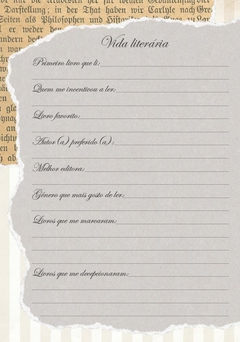 Darstellung; in der That haben wir Carlyle nach
als Philosophen und
er weder
Vida literária
Primeiro livro que li:
Quem me incentivou a ler:
Livro favorito:
Autor (a) preferido (a) :
Melhor editora:
Gênero que mais gosto de ler:
Livros que me marcaram:
Livros que me decepcionaram: